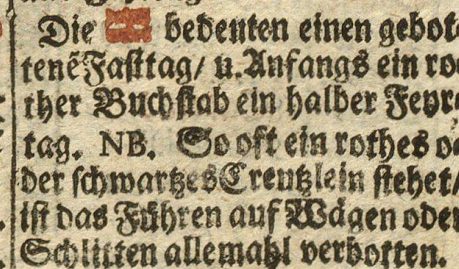 Die bedeuten einen gebot
tenē Fasttag/ u. Anfangs ein ro
ther Buchstab ein halber Feyr
tag. NB. So oft ein rothes o
der schwartzes Creutzlein stehet/
ist das Führen auf Wägen oder
Schlitten allemahl verbotten.